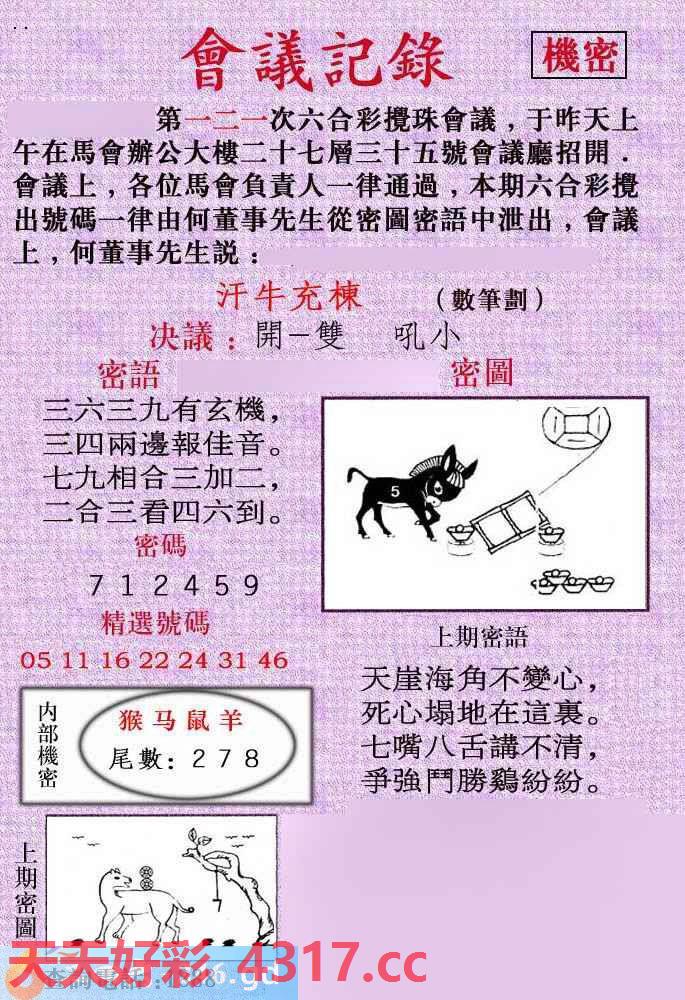 會議記錄
機密
第一二一次六合彩攪珠會議，于昨天上
午在馬會辦公大樓二十七層三十五號會議廳招開．
會議上，各位馬會負責人一律通過，本期六合彩攪
出號碼一律由何董事先生從密圖密語中泄出，會議
上，何董事先生説：
汗牛充棟 （數筆劃）
决議：開－雙 吼小
密語
密圖
三六三九有玄機，
三四兩邊報佳音。
七九相合三加二，
二合三看四六到。
5
密碼
7 1 2 4 5 9
精選號碼
05 11 16 22 24 31 46
上期密語
天崖海角不變心，
死心塌地在這裏。
七嘴八舌講不清，
爭強鬥勝鷄紛紛。
内部機密
猴马鼠羊
尾數：2 7 8
上期密圖
7
天天好彩 4317.cc
查詢電話：
.gd